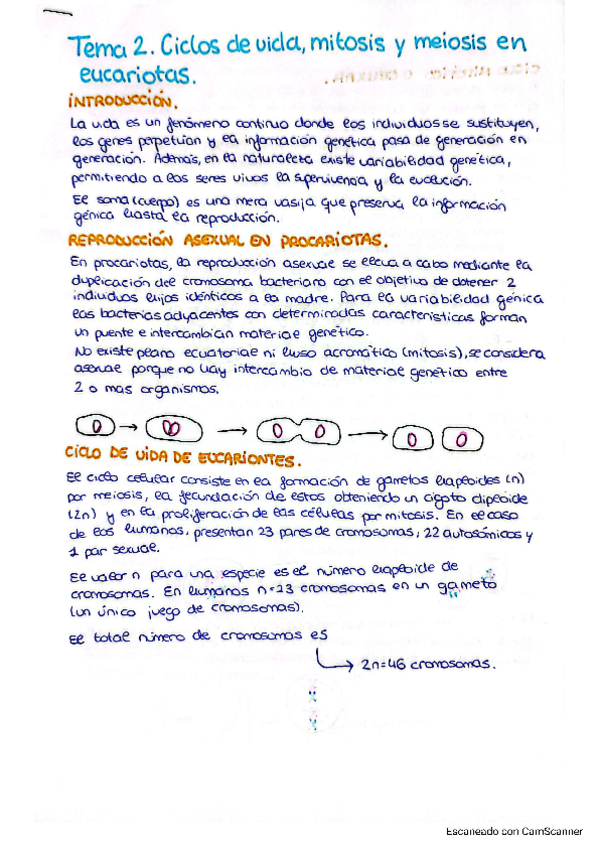 Tema 2. Ciclos de vida, mitosis y meiosis en
eucariotas.
INTRODUCCIÓN.
La vida es un fenómeno continuo donde los individuos se sustituyen,
los genes perpetúan y la información genética pasa de generación en
generación. Además, en la naturaleza existe variabilidad genética,
permitiendo a los seres vivos la supervivencia y la evolución.
El soma (cuerpo) es una mera vasija que preserva la información
génica hasta la reproducción.
REPRODUCCIÓN ASEXUAL EN PROCARIOTAS.
En procariotas, la reproducción asexual se lleva a cabo mediante la
duplicación del cromosoma bacteriano con el objetivo de obtener 2
individuos hijos idénticos a la madre. Para la variabilidad génica
las bacterias adyacentes con determinadas características forman
un puente e intercambian material genético.
No existe plano ecuatorial ni huso acromático (mitosis), se considera
asexual porque no hay intercambio de material genético entre
2 o mas organismos.
CICLO DE VIDA DE EUCARIONTES.
El ciclo celular consiste en la formación de gametos haploides (n)
por meiosis, la fecundación de estos obteniendo un cigoto diploide
(2n) y en la proliferación de las células por mitosis. En el caso
de los humanos, presentan 23 pares de cromosomas, 22 autosómicos y
1 par sexual.
El valor n para una especie es el número haploide de
cromosomas. En humanos n=23 cromosomas en un gameto
(un único juego de cromosomas).
El total número de cromosomas es
2n=46 cromosomas.
Escaneado con CamScanner